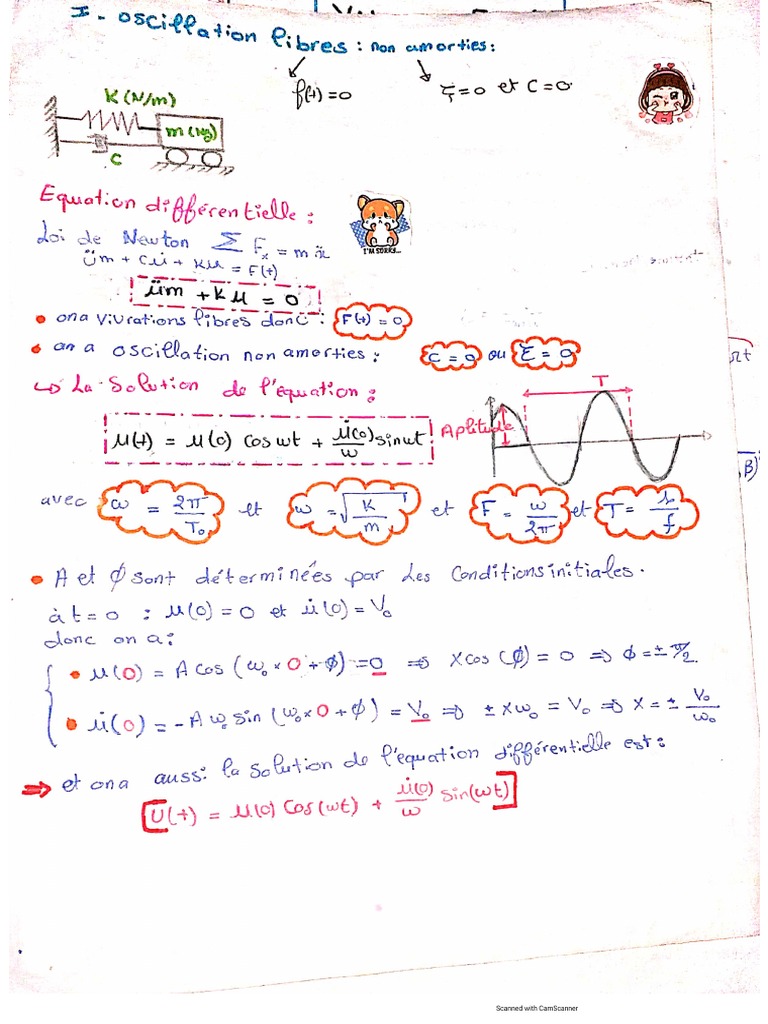 I - oscillation libres : non amorties :
f(t) = 0
ξ = 0 et C = 0
K (N/m)
m (Kg)
C
Equation différentielle :
I'M SORRY...
Loi de Newton Σ Fx = m ẍ
üm + cu̇ + ku = F(t)
üm + K u = 0
• ona vivrations libres donc : F(t) = 0
• an a oscillation non amorties : C = 0 ou ξ = 0
↳ La Solution de l'équation :
T
u(t) = u(0) cos wt + u̇(0)/w sin wt
Aplitude
avec ω = 2π/T₀ et ω = √(K/m) et F = ω/2π et T = 1/f
• A et φ sont déterminées par les Conditions initiales.
à t = 0 : u(0) = 0 et u̇(0) = V₀
donc on a :
• u(0) = A cos (ω₀ × 0 + φ) = 0 ⇒ X cos (φ) = 0 ⇒ φ = ± π/2.
• u̇(0) = - A ω₀ sin (ω₀ × 0 + φ) = V₀ ⇒ ± X ω₀ = V₀ ⇒ X = ± V₀/ω₀
⇒ et ona aussi la solution de l'équation différentielle est :
[U(t) = u(0) Cos(wt) + u̇(0)/w sin(wt)]
Scanned with CamScanner